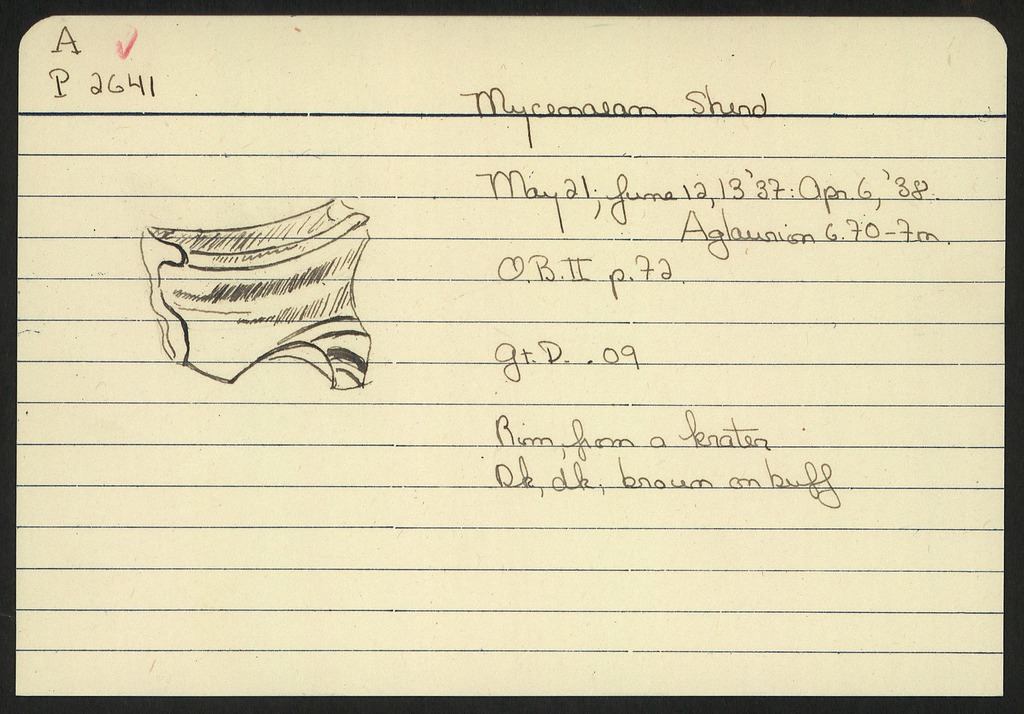 A ✓
P 2641
Mycenaean Sherd
May 21; June 12, 13 '37: Apr. 6, '38.
Aglaurion 6.70-7m.
O.B. II p. 72
Gt. D. .09
Rim, from a krater
Dk, dk, brown on buff